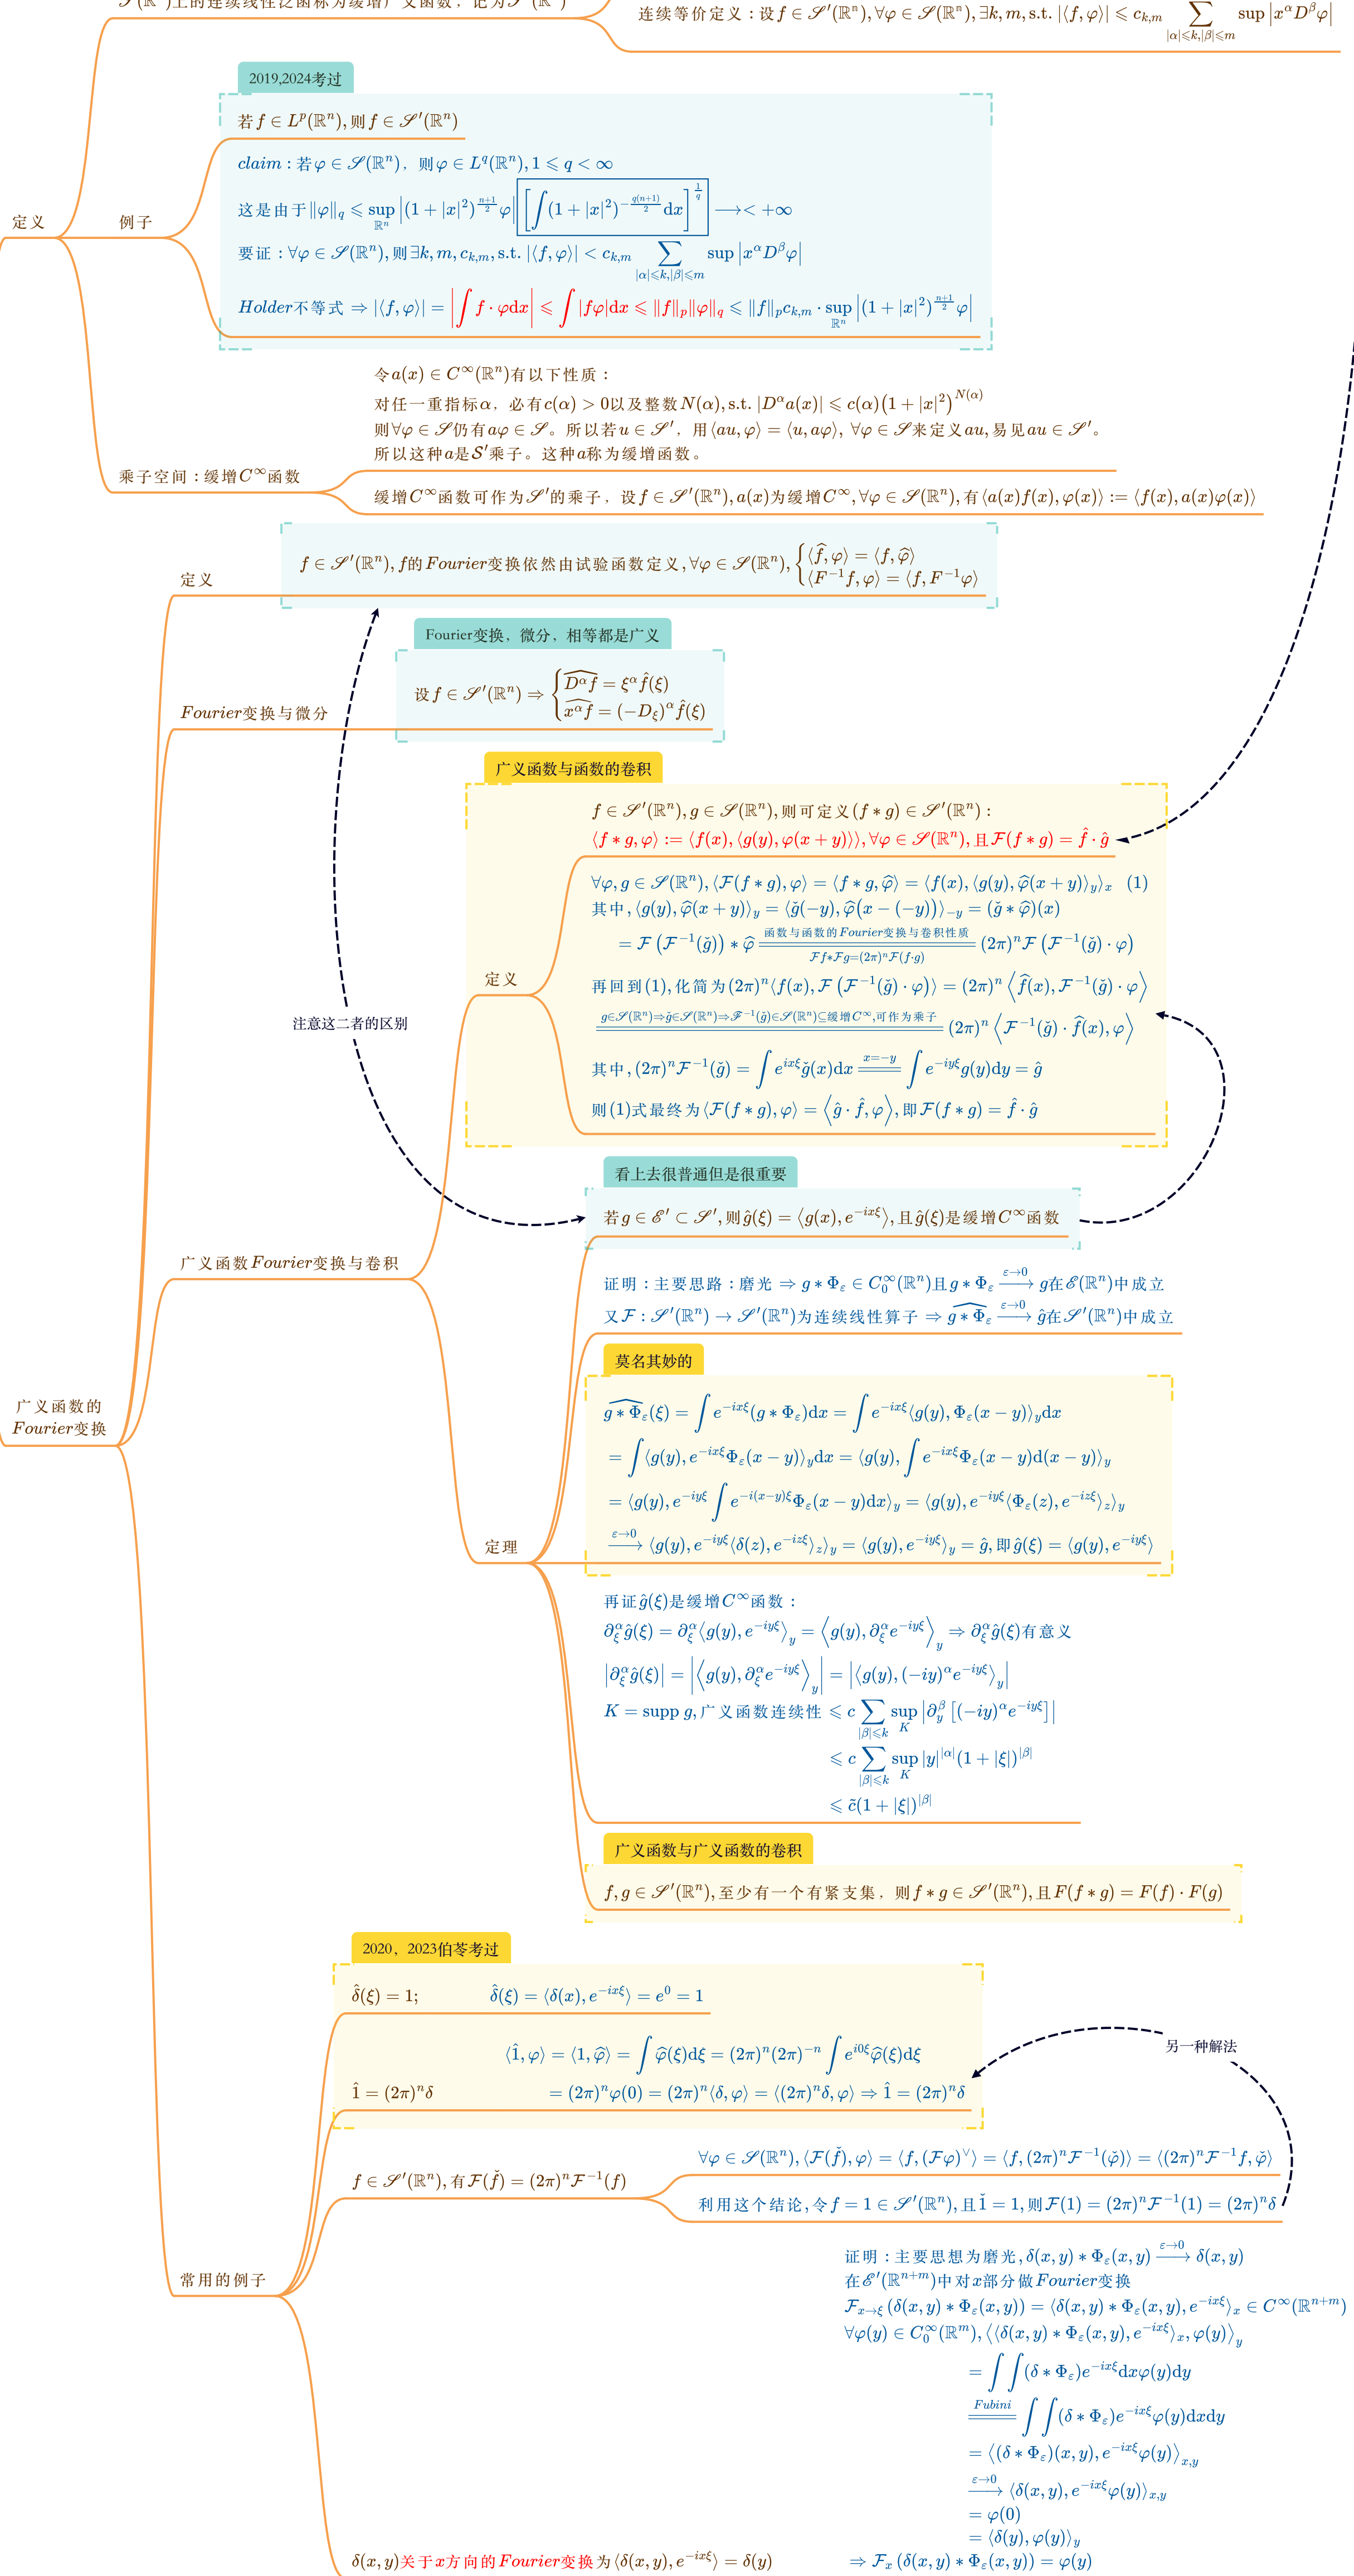 𝒮(ℝⁿ)上的连续线性泛函称为缓增广义函数，记为𝒮′(ℝⁿ)
连续等价定义：设f ∈ 𝒮′(ℝⁿ), ∀φ ∈ 𝒮(ℝⁿ), ∃k, m, s.t. |⟨f, φ⟩| ⩽ c_{k,m} ∑_{|α|⩽k,|β|⩽m} sup |x^α D^β φ|
2019,2024考过
若f ∈ L^p(ℝⁿ), 则f ∈ 𝒮′(ℝⁿ)
claim : 若φ ∈ 𝒮(ℝⁿ)，则φ ∈ L^q(ℝⁿ), 1 ⩽ q < ∞
这是由于‖φ‖_q ⩽ sup_{ℝⁿ} |(1 + |x|²)^{(n+1)/2} φ| [∫(1 + |x|²)^{-q(n+1)/2} dx]^{1/q} ⟶< +∞
要证：∀φ ∈ 𝒮(ℝⁿ), 则∃k, m, c_{k,m}, s.t. |⟨f, φ⟩| < c_{k,m} ∑_{|α|⩽k,|β|⩽m} sup |x^α D^β φ|
定义
例子
Holder不等式 ⇒ |⟨f, φ⟩| = |∫ f · φdx| ⩽ ∫ |fφ|dx ⩽ ‖f‖_p‖φ‖_q ⩽ ‖f‖_p c_{k,m} · sup_{ℝⁿ} |(1 + |x|²)^{(n+1)/2} φ|
令a(x) ∈ C^∞(ℝⁿ)有以下性质：
对任一重指标α，必有c(α) > 0以及整数N(α), s.t. |D^α a(x)| ⩽ c(α)(1 + |x|²)^{N(α)}
则∀φ ∈ 𝒮仍有aφ ∈ 𝒮。所以若u ∈ 𝒮′，用⟨au, φ⟩ = ⟨u, aφ⟩, ∀φ ∈ 𝒮来定义au, 易见au ∈ 𝒮′。
所以这种a是𝒮′乘子。这种a称为缓增函数。
乘子空间：缓增C^∞函数
缓增C^∞函数可作为𝒮′的乘子，设f ∈ 𝒮′(ℝⁿ), a(x)为缓增C^∞, ∀φ ∈ 𝒮(ℝⁿ), 有⟨a(x)f(x), φ(x)⟩ := ⟨f(x), a(x)φ(x)⟩
定义
f ∈ 𝒮′(ℝⁿ), f的Fourier变换依然由试验函数定义, ∀φ ∈ 𝒮(ℝⁿ), { ⟨f̂, φ⟩ = ⟨f, φ̂⟩
⟨F⁻¹f, φ⟩ = ⟨f, F⁻¹φ⟩
Fourier变换，微分，相等都是广义
Fourier变换与微分
设f ∈ 𝒮′(ℝⁿ) ⇒ { \widehat{D^α f} = ξ^α f̂(ξ)
\widehat{x^α f} = (−D_ξ)^α f̂(ξ)
广义函数与函数的卷积
f ∈ 𝒮′(ℝⁿ), g ∈ 𝒮(ℝⁿ), 则可定义(f ∗ g) ∈ 𝒮′(ℝⁿ) :
⟨f ∗ g, φ⟩ := ⟨f(x), ⟨g(y), φ(x + y)⟩⟩, ∀φ ∈ 𝒮(ℝⁿ), 且ℱ(f ∗ g) = f̂ · ĝ
∀φ, g ∈ 𝒮(ℝⁿ), ⟨ℱ(f ∗ g), φ⟩ = ⟨f ∗ g, φ̂⟩ = ⟨f(x), ⟨g(y), φ̂(x + y)⟩_y⟩_x (1)
其中, ⟨g(y), φ̂(x + y)⟩_y = ⟨ǧ(−y), φ̂(x − (−y))⟩_{−y} = (ǧ ∗ φ̂)(x)
= ℱ(ℱ⁻¹(ǧ)) ∗ φ̂ ==[函数与函数的Fourier变换与卷积性质][ℱf∗ℱg=(2π)ⁿℱ(f·g)]== (2π)ⁿℱ(ℱ⁻¹(ǧ) · φ)
定义
再回到(1), 化简为(2π)ⁿ⟨f(x), ℱ(ℱ⁻¹(ǧ) · φ)⟩ = (2π)ⁿ⟨f̂(x), ℱ⁻¹(ǧ) · φ⟩
==[g∈𝒮(ℝⁿ)⇒ǧ∈𝒮(ℝⁿ)⇒ℱ⁻¹(ǧ)∈𝒮(ℝⁿ)⊆缓增C^∞,可作为乘子]== (2π)ⁿ⟨ℱ⁻¹(ǧ) · f̂(x), φ⟩
其中, (2π)ⁿℱ⁻¹(ǧ) = ∫ e^{ixξ} ǧ(x)dx ==[x=−y]== ∫ e^{−iyξ} g(y)dy = ĝ
则(1)式最终为⟨ℱ(f ∗ g), φ⟩ = ⟨ĝ · f̂, φ⟩, 即ℱ(f ∗ g) = f̂ · ĝ
注意这二者的区别
看上去很普通但是很重要
若g ∈ ℰ′ ⊂ 𝒮′, 则ĝ(ξ) = ⟨g(x), e^{−ixξ}⟩, 且ĝ(ξ)是缓增C^∞函数
广义函数Fourier变换与卷积
证明：主要思路：磨光 ⇒ g ∗ Φ_ε ∈ C₀^∞(ℝⁿ)且g ∗ Φ_ε →[ε→0] g在ℰ(ℝⁿ)中成立
又ℱ : 𝒮′(ℝⁿ) → 𝒮′(ℝⁿ)为连续线性算子 ⇒ \widehat{g ∗ Φ_ε} →[ε→0] ĝ在𝒮′(ℝⁿ)中成立
莫名其妙的
\widehat{g ∗ Φ_ε}(ξ) = ∫ e^{−ixξ}(g ∗ Φ_ε)dx = ∫ e^{−ixξ}⟨g(y), Φ_ε(x − y)⟩_y dx
= ∫⟨g(y), e^{−ixξ}Φ_ε(x − y)⟩_y dx = ⟨g(y), ∫ e^{−ixξ}Φ_ε(x − y)d(x − y)⟩_y
= ⟨g(y), e^{−iyξ} ∫ e^{−i(x−y)ξ}Φ_ε(x − y)dx⟩_y = ⟨g(y), e^{−iyξ}⟨Φ_ε(z), e^{−izξ}⟩_z⟩_y
→[ε→0] ⟨g(y), e^{−iyξ}⟨δ(z), e^{−izξ}⟩_z⟩_y = ⟨g(y), e^{−iyξ}⟩_y = ĝ, 即ĝ(ξ) = ⟨g(y), e^{−iyξ}⟩
广义函数的
Fourier变换
定理
再证ĝ(ξ)是缓增C^∞函数：
∂_ξ^α ĝ(ξ) = ∂_ξ^α⟨g(y), e^{−iyξ}⟩_y = ⟨g(y), ∂_ξ^α e^{−iyξ}⟩_y ⇒ ∂_ξ^α ĝ(ξ)有意义
|∂_ξ^α ĝ(ξ)| = |⟨g(y), ∂_ξ^α e^{−iyξ}⟩_y| = |⟨g(y), (−iy)^α e^{−iyξ}⟩_y|
K = supp g, 广义函数连续性 ⩽ c ∑_{|β|⩽k} sup_K |∂_y^β [(−iy)^α e^{−iyξ}]|
⩽ c ∑_{|β|⩽k} sup_K |y|^{|α|}(1 + |ξ|)^{|β|}
⩽ c̃(1 + |ξ|)^{|β|}
广义函数与广义函数的卷积
f, g ∈ 𝒮′(ℝⁿ), 至少有一个有紧支集，则f ∗ g ∈ 𝒮′(ℝⁿ), 且F(f ∗ g) = F(f) · F(g)
2020，2023伯苓考过
δ̂(ξ) = 1; δ̂(ξ) = ⟨δ(x), e^{−ixξ}⟩ = e⁰ = 1
⟨1̂, φ⟩ = ⟨1, φ̂⟩ = ∫ φ̂(ξ)dξ = (2π)ⁿ(2π)⁻ⁿ ∫ e^{i0ξ}φ̂(ξ)dξ
1̂ = (2π)ⁿδ = (2π)ⁿφ(0) = (2π)ⁿ⟨δ, φ⟩ = ⟨(2π)ⁿδ, φ⟩ ⇒ 1̂ = (2π)ⁿδ
另一种解法
∀φ ∈ 𝒮(ℝⁿ), ⟨ℱ(f̌), φ⟩ = ⟨f, (ℱφ)^∨⟩ = ⟨f, (2π)ⁿℱ⁻¹(φ̌)⟩ = ⟨(2π)ⁿℱ⁻¹f, φ̌⟩
f ∈ 𝒮′(ℝⁿ), 有ℱ(f̌) = (2π)ⁿℱ⁻¹(f)
利用这个结论, 令f = 1 ∈ 𝒮′(ℝⁿ), 且1̌ = 1, 则ℱ(1) = (2π)ⁿℱ⁻¹(1) = (2π)ⁿδ
常用的例子
证明：主要思想为磨光, δ(x, y) ∗ Φ_ε(x, y) →[ε→0] δ(x, y)
在ℰ′(ℝ^{n+m})中对x部分做Fourier变换
ℱ_{x→ξ}(δ(x, y) ∗ Φ_ε(x, y)) = ⟨δ(x, y) ∗ Φ_ε(x, y), e^{−ixξ}⟩_x ∈ C^∞(ℝ^{n+m})
∀φ(y) ∈ C₀^∞(ℝᵐ), ⟨⟨δ(x, y) ∗ Φ_ε(x, y), e^{−ixξ}⟩_x, φ(y)⟩_y
= ∫∫(δ ∗ Φ_ε)e^{−ixξ}dxφ(y)dy
==[Fubini]== ∫∫(δ ∗ Φ_ε)e^{−ixξ}φ(y)dxdy
= ⟨(δ ∗ Φ_ε)(x, y), e^{−ixξ}φ(y)⟩_{x,y}
→[ε→0] ⟨δ(x, y), e^{−ixξ}φ(y)⟩_{x,y}
= φ(0)
= ⟨δ(y), φ(y)⟩_y
δ(x, y)关于x方向的Fourier变换为⟨δ(x, y), e^{−ixξ}⟩ = δ(y)
⇒ ℱ_x(δ(x, y) ∗ Φ_ε(x, y)) = φ(y)